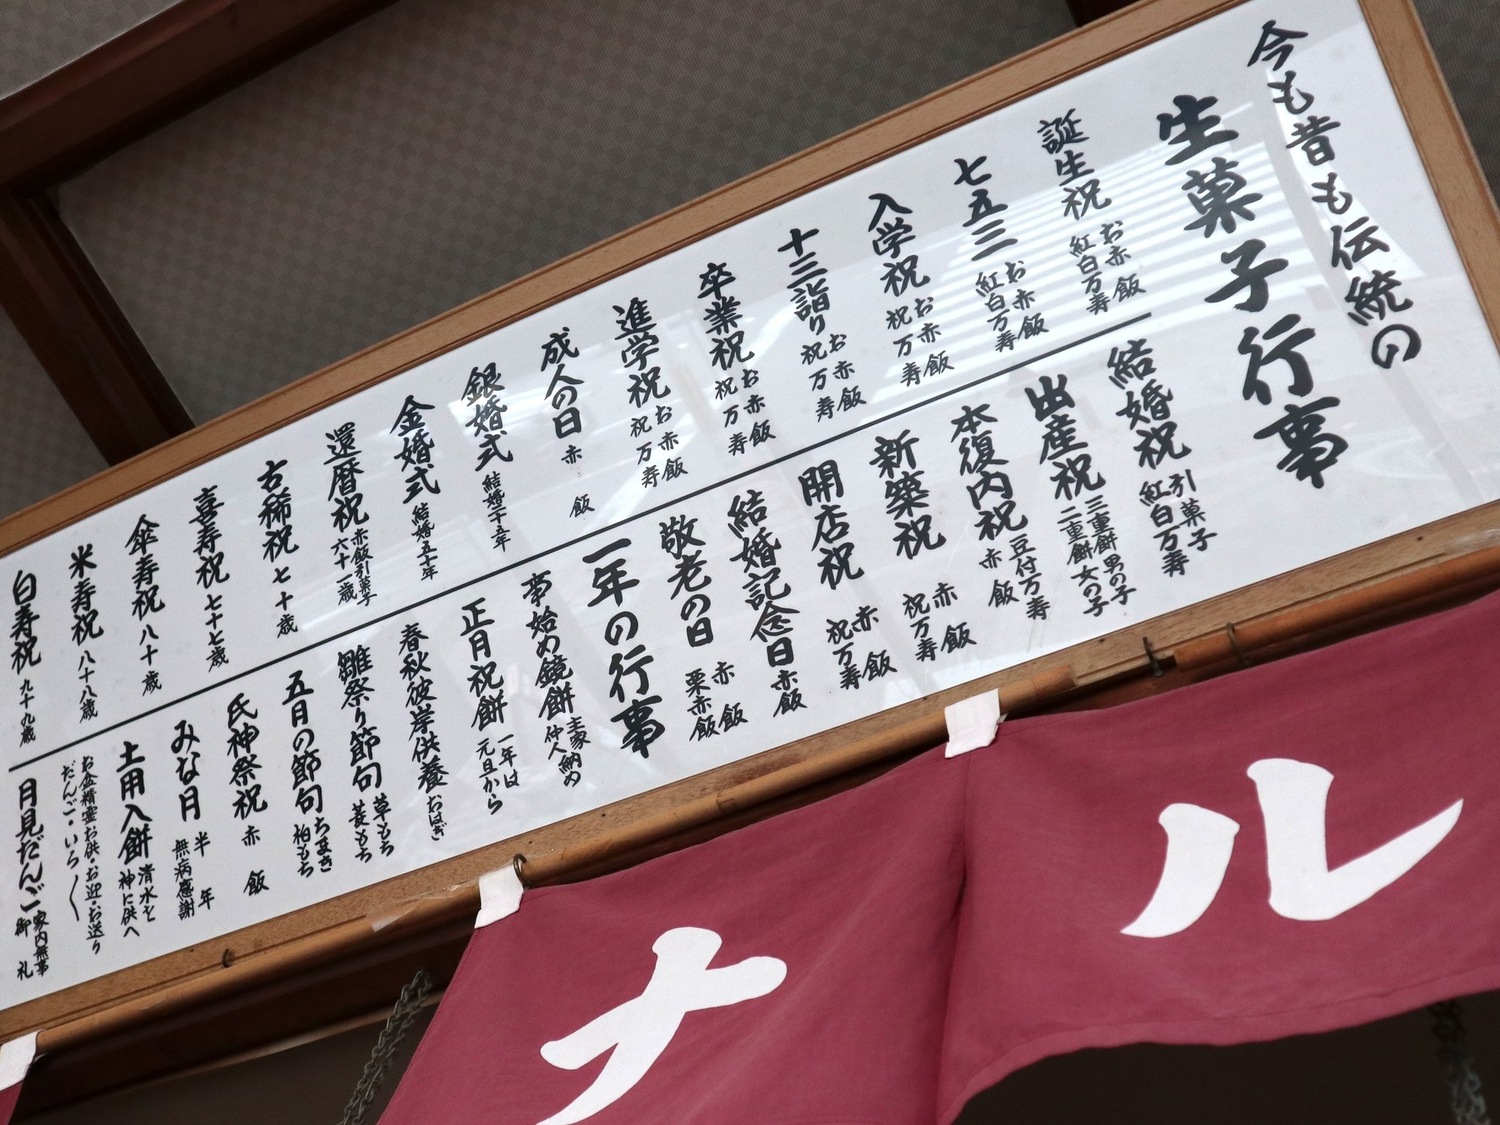 今も昔も伝統の
生菓子行事
誕生祝 お赤飯 紅白万寿
七五三 お赤飯 紅白万寿
入学祝 お赤飯 祝万寿
十三詣り お赤飯 祝万寿
卒業祝 お赤飯 祝万寿
進学祝 お赤飯 祝万寿
成人の日 赤飯
銀婚式 結婚二十五年
金婚式 結婚五十年
還暦祝 赤飯引菓子 六十一歳
古稀祝 七十歳
喜寿祝 七十七歳
傘寿祝 八十歳
米寿祝 八十八歳
白寿祝 九十九歳
結婚祝 引菓子 紅白万寿
出産祝 三重餅男の子 二重餅女の子
本復内祝 豆付万寿 赤飯
新築祝 赤飯 祝万寿
開店祝 赤飯 祝万寿
結婚記念日 赤飯
敬老の日 赤飯 栗赤飯
一年の行事
事始め鏡餅 主家納め 仲人納め
正月祝餅 一年は 元旦から
春秋彼岸供養 おはぎ
雛祭り節句 草もち 菱もち
五月の節句 ちまき 柏もち
氏神祭祝 赤飯
みな月 半年 無病感謝
土用入餅 清水と 神に供へ
お盆精霊お供・お迎・お送り
だんご・いろ〱
月見だんご 家内無事 御礼
ナル